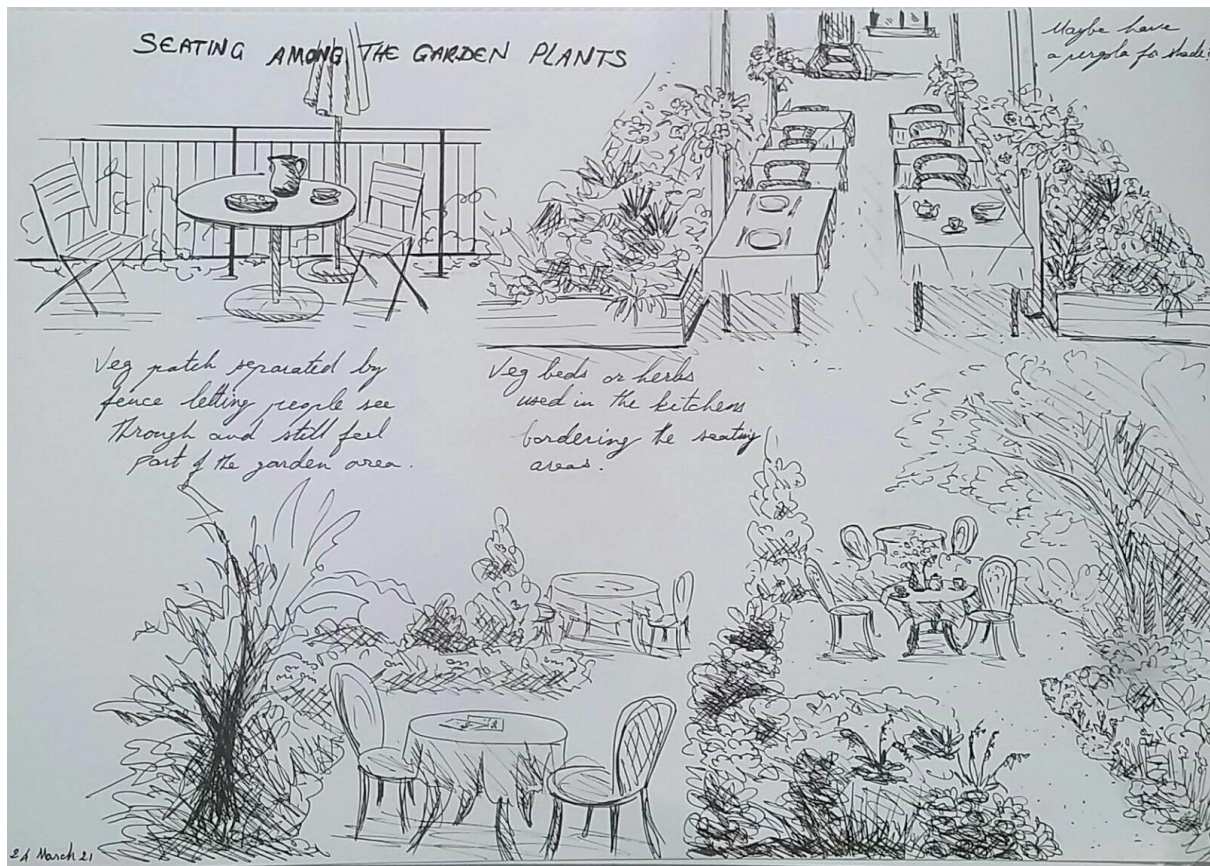 SEATING AMONG THE GARDEN PLANTS
Maybe have
a pergola for shade?
Veg patch separated by
fence letting people see
through and still feel
part of the garden area.
Veg beds or herbs
used in the kitchens
bordering the seating
areas.
24 March 21